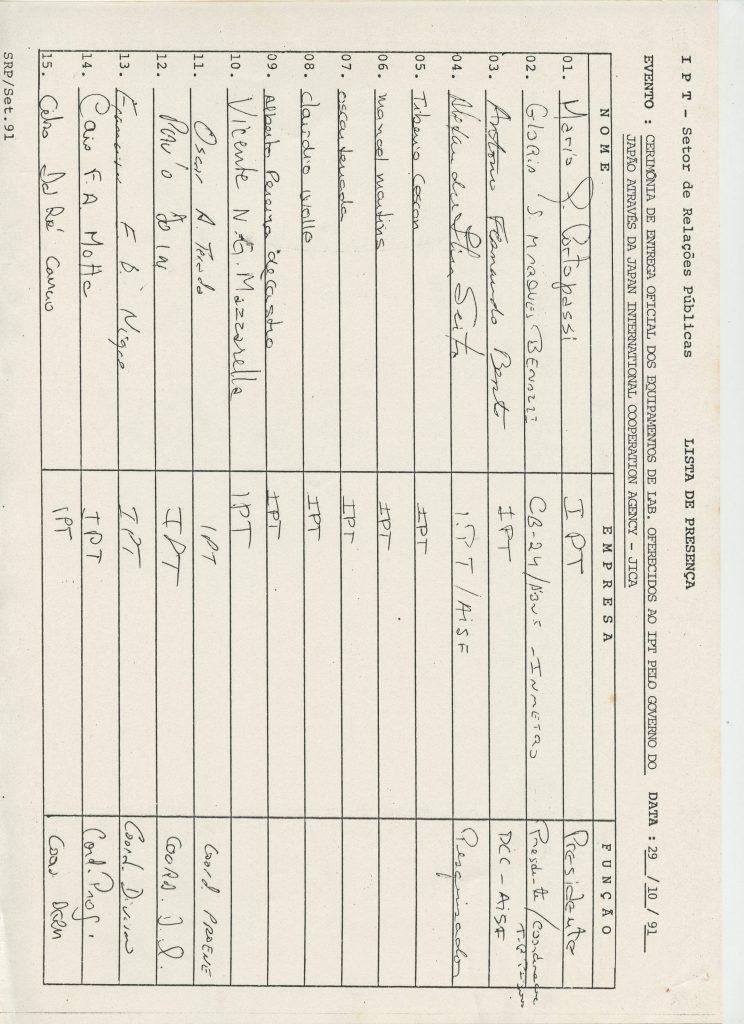 I P T - Setor de Relações Públicas LISTA DE PRESENÇA
EVENTO : CERIMÔNIA DE ENTREGA OFICIAL DOS EQUIPAMENTOS DE LAB. OFERECIDOS AO IPT PELO GOVERNO DO DATA : 29 / 10 / 91
JAPÃO ATRAVÉS DA JAPAN INTERNATIONAL COOPERATION AGENCY - JICA
N O M E E M P R E S A F U N Ç Ã O
01. Mario G. Cortopassi I PT Presidente
02. Gloria S CB-24/ - INMETRO Presidente/Coordenadora
03. Antonio Fernando Berto IPT DCC-AISF
04. Seito I.PT/AISF Pesquisador
05. Tiberio IPT
06. marcol martins IPT
07. oscar terada IPT
08. claudio IPT
09. Alberto Pereira de castro IPT
10. Vicente N.G. Mazzarella IPT
11. Oscar A. Terada IPT Coord PROENE
12. IPT COORD. J.I.
13. F E. Nigro IPT Coord. Divisão
14. Caio F.A. Motta IPT Cord. Proj.
15. Celso Del Ré Carneiro IPT
SRP/Set.91